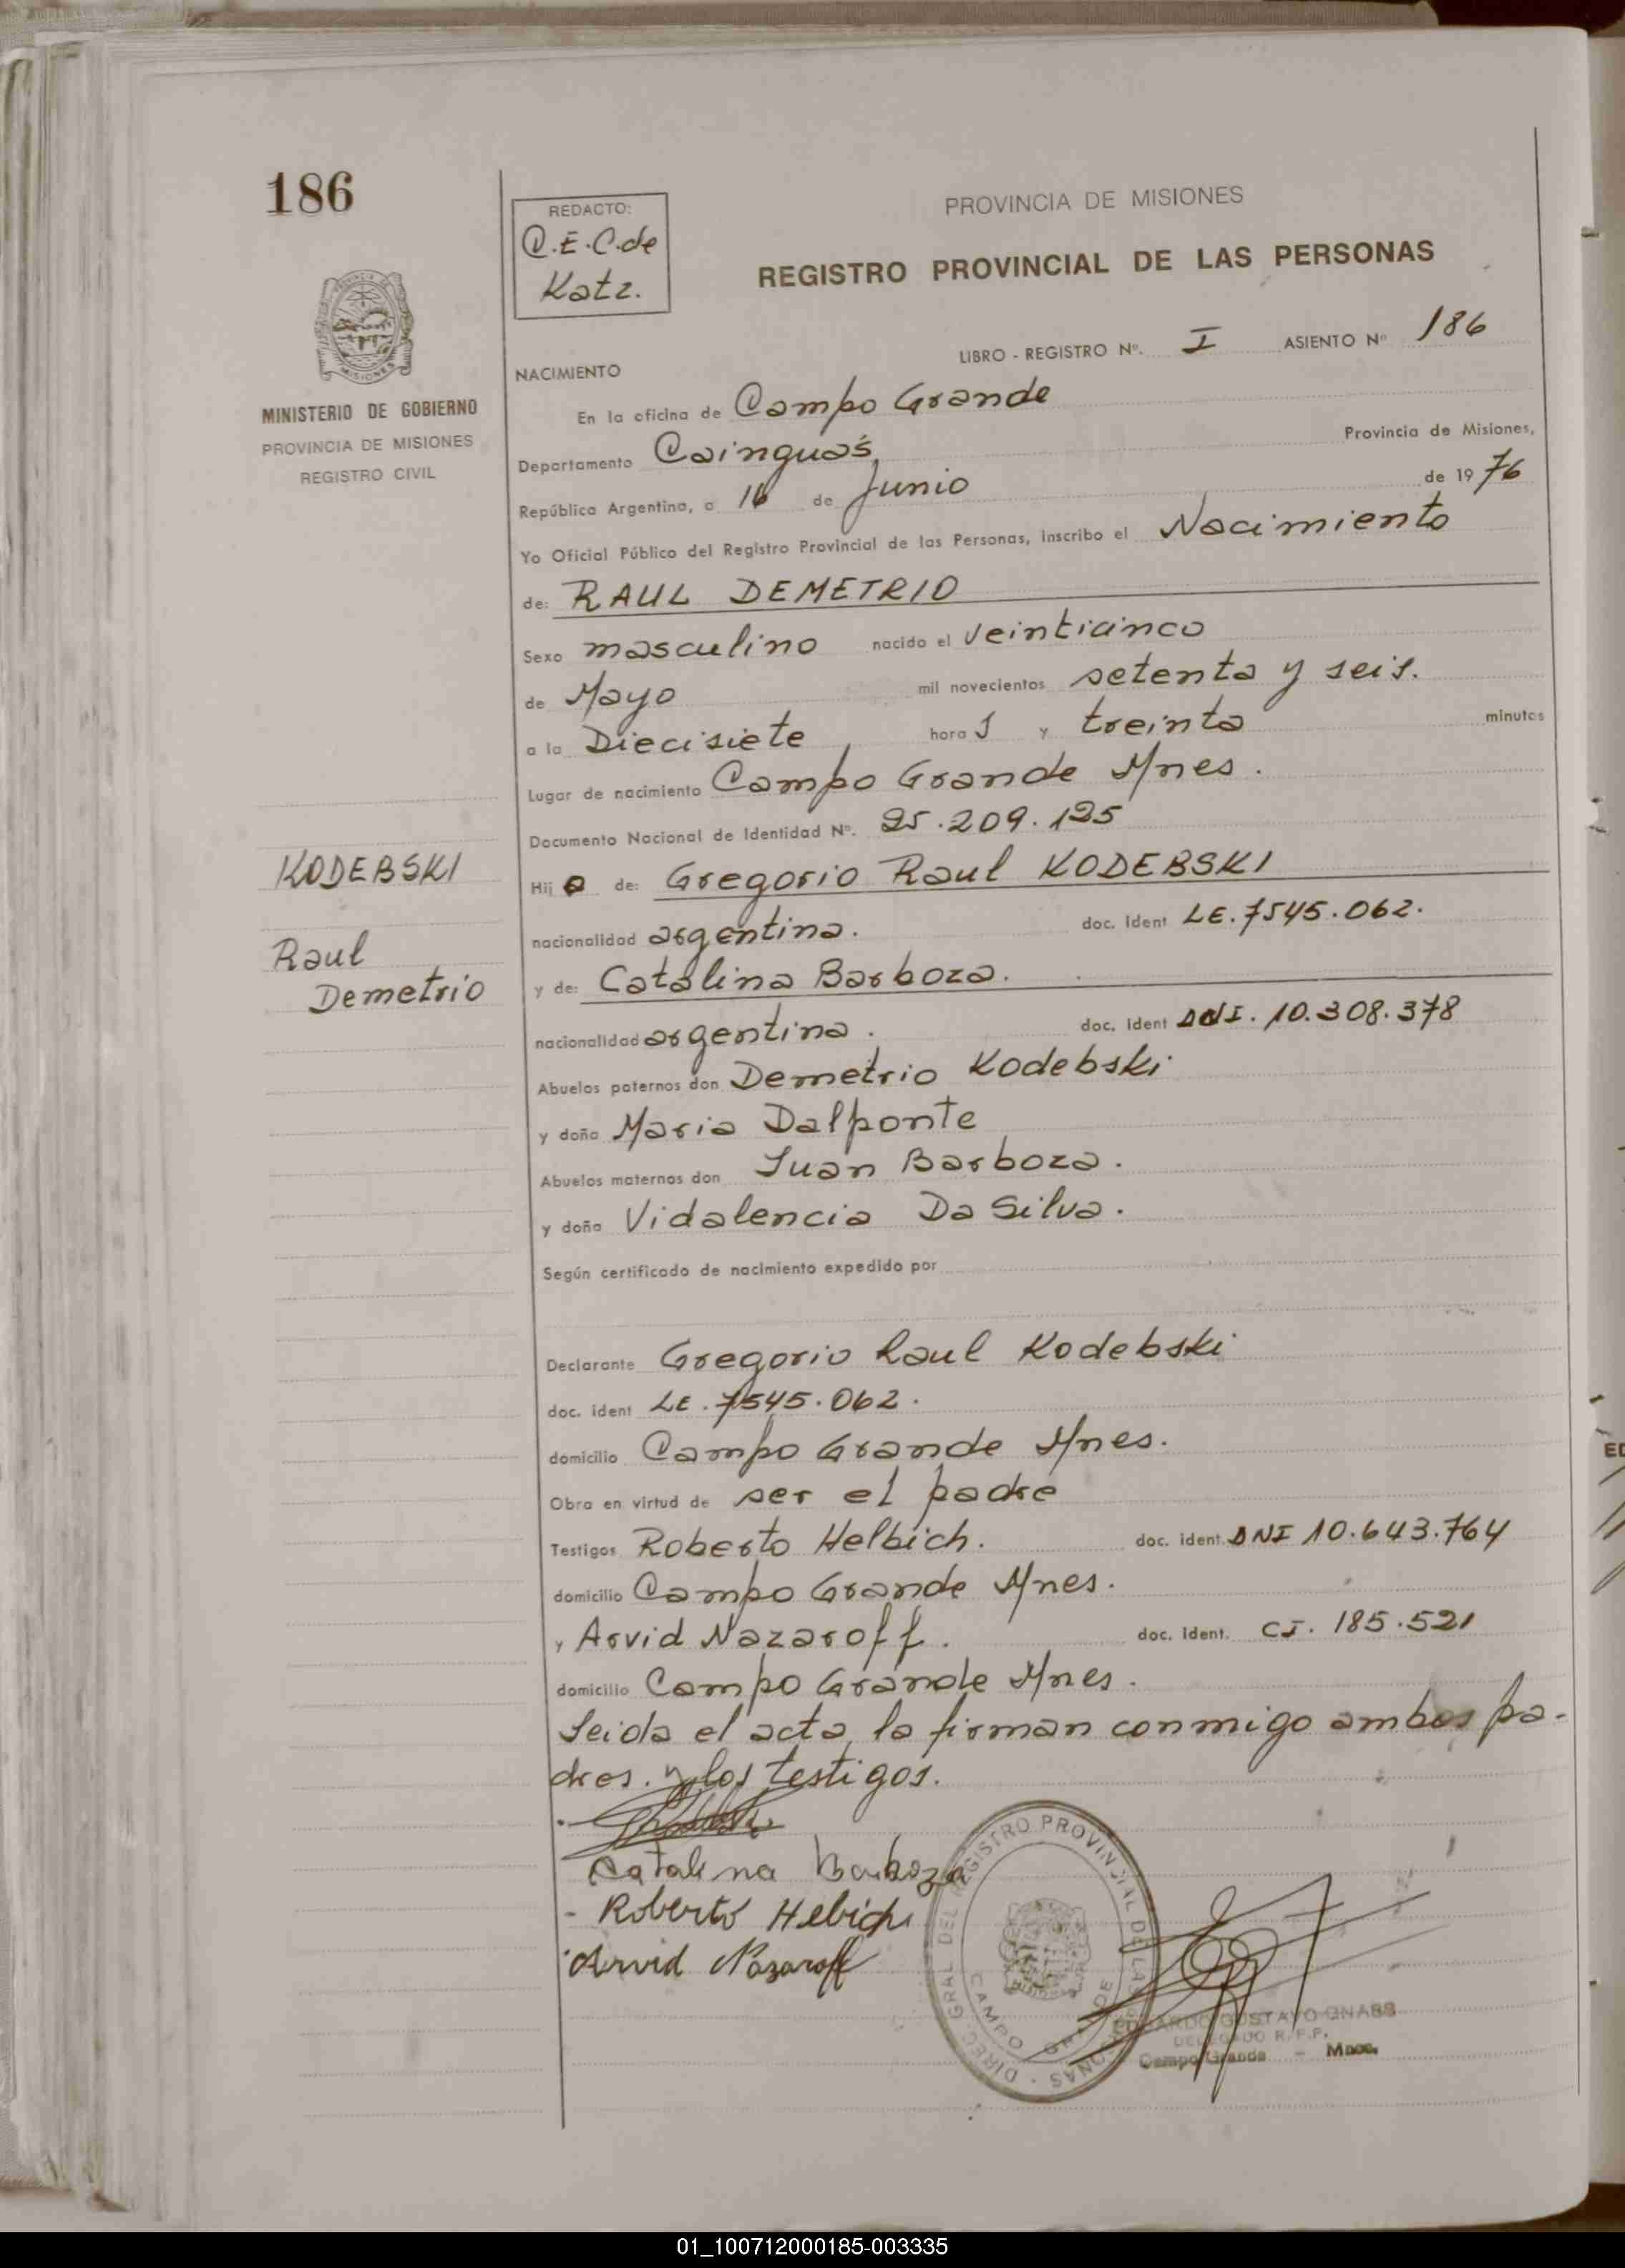 186
REDACTO:
C.E.C.de
Katz.
PROVINCIA DE MISIONES
REGISTRO PROVINCIAL DE LAS PERSONAS
MINISTERIO DE GOBIERNO
PROVINCIA DE MISIONES
REGISTRO CIVIL
LIBRO - REGISTRO Nº. I ASIENTO Nº 186
NACIMIENTO
En la oficina de Campo Grande
Departamento Cainguás, Provincia de Misiones,
República Argentina, a 16 de Junio de 1976
Yo Oficial Público del Registro Provincial de las Personas, inscribo el Nacimiento
de: RAUL DEMETRIO
Sexo masculino nacido el veinticinco
de Mayo mil novecientos setenta y seis.
a la Diecisiete, hora s y treinta minutos
Lugar de nacimiento Campo Grande Mnes.
Documento Nacional de Identidad Nº. 25.209.125
KODEBSKI
Raul
Demetrio
Hij o de: Gregorio Raul KODEBSKI
nacionalidad argentina. doc. ident LE.7545.062.
y de: Catalina Barboza.
nacionalidad argentina. doc. ident DNI. 10.308.378
Abuelos paternos don Demetrio Kodebski
y doña Maria Dalponte
Abuelos maternos don Juan Barboza.
y doña Vidalencia Da Silva.
Según certificado de nacimiento expedido por
Declarante Gregorio Raul Kodebski
doc. ident LE.7545.062.
domicilio Campo Grande Mnes.
Obra en virtud de ser el padre
Testigos Roberto Helbich. doc. ident. DNI 10.643.764
domicilio Campo Grande Mnes.
y Arvid Nazaroff. doc. ident. CI. 185.521
domicilio Campo Grande Mnes.
Leida el acta, la firman conmigo ambos pa-
dres. y los testigos.
Catalina Barboza
- Roberto Helbich
Arvid Nazaroff
DIREC. GRAL DEL REGISTRO PROVINCIAL DE LAS PERSONAS
CAMPO GRANDE
EDUARDO GUSTAVO GNASS
DELEGADO R.P.P.
Campo Grande - Mnes.
01_100712000185-003335